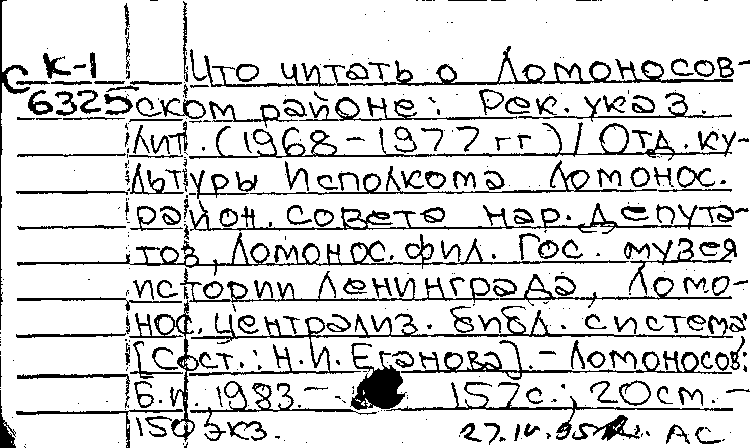 К-1 Что читать о Ломоносов-
С 6325 ском районе: Рек. указ.
лит. (1968-1977 гг) / Отд. ку-
льтуры Исполкома Ломонос.
район. совета нар. депута-
тов, Ломонос. фил. Гос. музея
истории Ленинграда, Ломо-
нос. централиз. библ. система;
[Сост.: Н.И. Еганова]. - Ломоносов:
Б.и., 1983. - 157с.; 20см. -
150 экз. АС